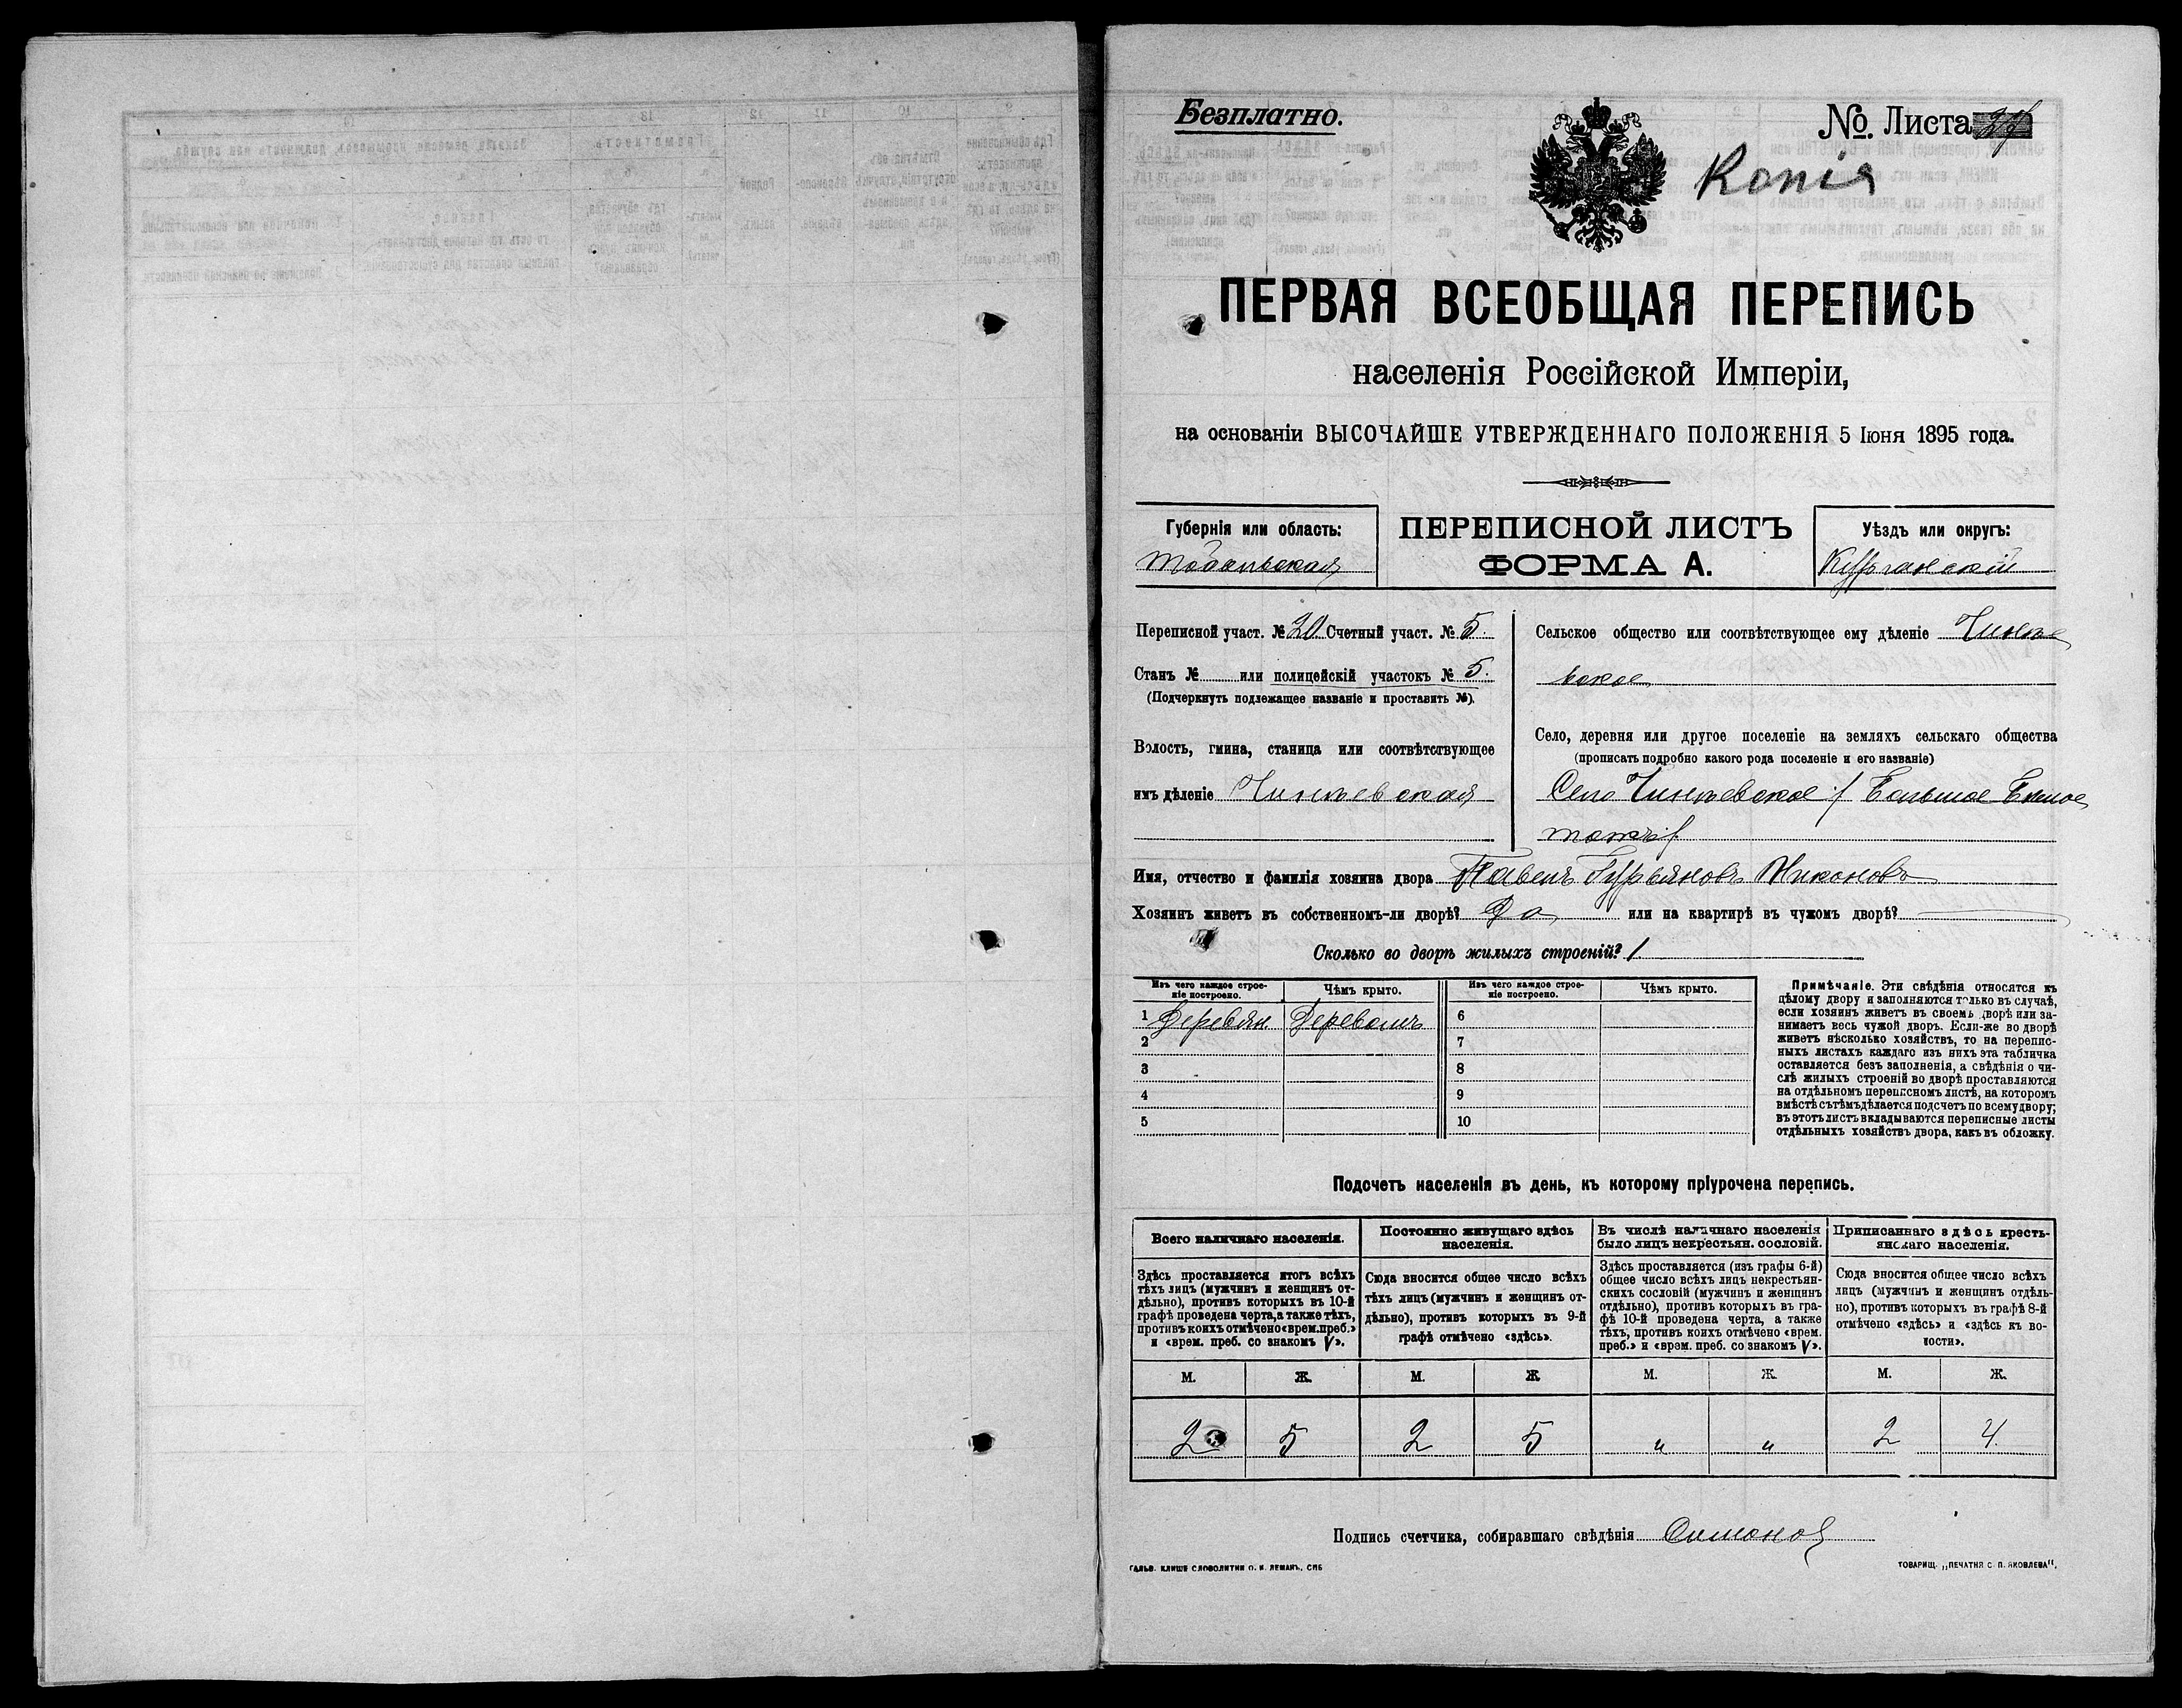 Безплатно.
№ Листа 27
Копія
ПЕРВАЯ ВСЕОБЩАЯ ПЕРЕПИСЬ
населенія Россійской Имперіи,
на основаніи ВЫСОЧАЙШЕ УТВЕРЖДЕННАГО ПОЛОЖЕНІЯ 5 Іюня 1895 года.
Губернія или область:
Тобольская
ПЕРЕПИСНОЙ ЛИСТЪ
ФОРМА А.
Уѣздъ или округъ:
Курганскій
Переписной участ. № 20 Счетный участ. № 5.
Станъ № или полицейскій участокъ № 5.
(Подчеркнуть подлежащее названіе и проставить №).
Волость, гмина, станица или соотвѣтствующее
имъ дѣленіе Чинѣевская
Сельское общество или соотвѣтствующее ему дѣленіе Чинѣе
вское
Село, деревня или другое поселеніе на земляхъ сельскаго общества
(прописать подробно какого рода поселеніе и его названіе)
Село Чинѣевское / Большое Бѣлое
тожъ/
Имя, отчество и фамилія хозяина двора Павелъ Гурьяновъ Никоновъ
Хозяинъ живетъ въ собственномъ-ли дворѣ? Да или на квартирѣ въ чужомъ дворѣ?
Сколько во дворѣ жилыхъ строеній? 1
Изъ чего каждое строе-
ніе построено.
Чѣмъ крыто.
Изъ чего каждое строе-
ніе построено.
Чѣмъ крыто.
1 Деревян. Деревомъ 6
2 7
3 8
4 9
5 10
Примѣчаніе. Эти свѣдѣнія относятся къ
цѣлому двору и заполняются только въ случаѣ,
если хозяинъ живетъ въ своемъ дворѣ или за-
нимаетъ весь чужой дворъ. Если-же во дворѣ
живетъ нѣсколько хозяйствъ, то на перепис-
ныхъ листахъ каждаго изъ нихъ эта табличка
оставляется безъ заполненія, а свѣдѣнія о чи-
слѣ жилыхъ строеній во дворѣ проставляются
на отдѣльномъ переписномъ листѣ, на которомъ
вмѣстѣ съ тѣмъ дѣлается подсчетъ по всему двору;
въ этотъ листъ вкладываются переписные листы
отдѣльныхъ хозяйствъ двора, какъ въ обложку.
Подсчетъ населенія въ день, къ которому пріурочена перепись.
Всего наличнаго населенія.
Постоянно живущаго здѣсь
населенія.
Въ числѣ наличнаго населенія
было лицъ некрестьян. сословій.
Приписаннаго здѣсь кресть-
янскаго населенія.
Здѣсь проставляется итогъ всѣхъ
тѣхъ лицъ (мужчинъ и женщинъ от-
дѣльно), противъ которыхъ въ 10-й
графѣ проведена черта, а также тѣхъ,
противъ коихъ отмѣчено «врем. преб.»
и «врем. преб. со знакомъ V».
Сюда вносится общее число всѣхъ
тѣхъ лицъ (мужчинъ и женщинъ от-
дѣльно), противъ которыхъ въ 9-й
графѣ отмѣчено «здѣсь».
Здѣсь проставляется (изъ графы 6-й)
общее число всѣхъ лицъ некрестьян-
скихъ сословій (мужчинъ и женщинъ
отдѣльно), противъ которыхъ въ гра-
фѣ 10-й проведена черта, а также
тѣхъ, противъ коихъ отмѣчено «врем.
преб.» и «врем. преб. со знакомъ V».
Сюда вносится общее число всѣхъ
лицъ (мужчинъ и женщинъ отдѣль-
но), противъ которыхъ въ графѣ 8-й
отмѣчено «здѣсь» и «здѣсь въ во-
лости».
М. Ж. М. Ж М. Ж. М. Ж.
2 5 2 5 „ „ 2 4.
Подпись счетчика, собиравшаго свѣдѣнія Симонов
ГАЛЬВ. КЛИШЕ СЛОВОЛИТНИ О. И. ЛЕМАНЪ, СПБ
ТОВАРИЩ. „ПЕЧАТНЯ С. П. ЯКОВЛЕВА".